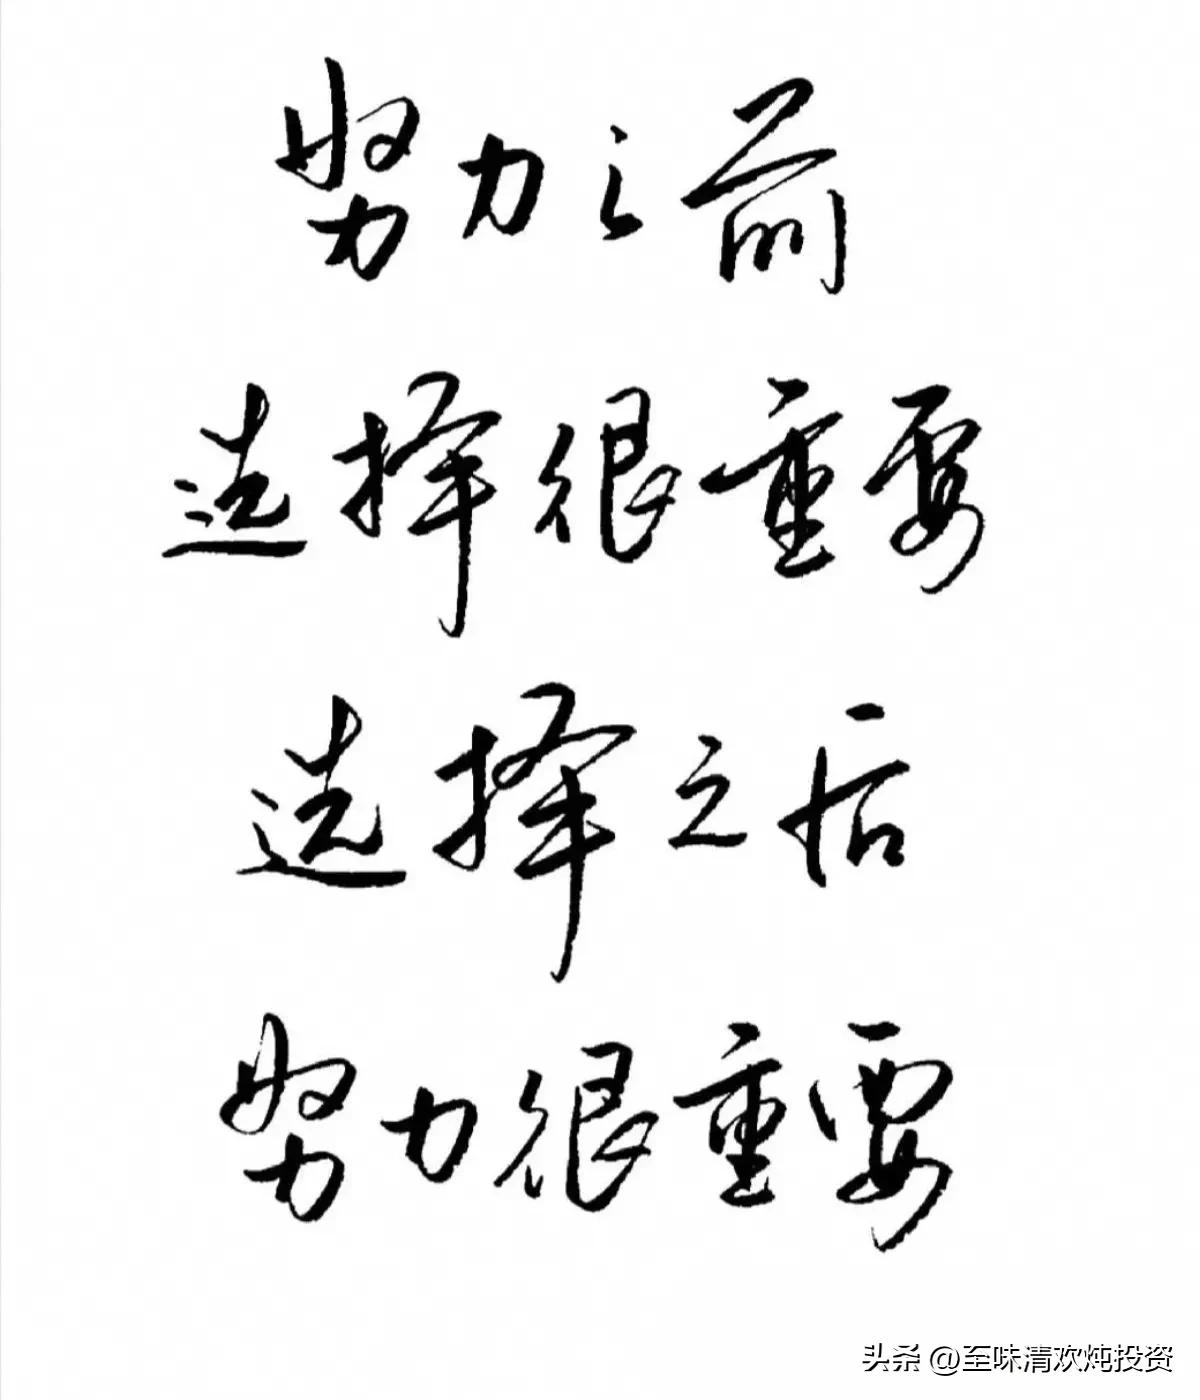 努力之前
选择很重要
选择之后
努力很重要
头条 @至味清欢炖投资